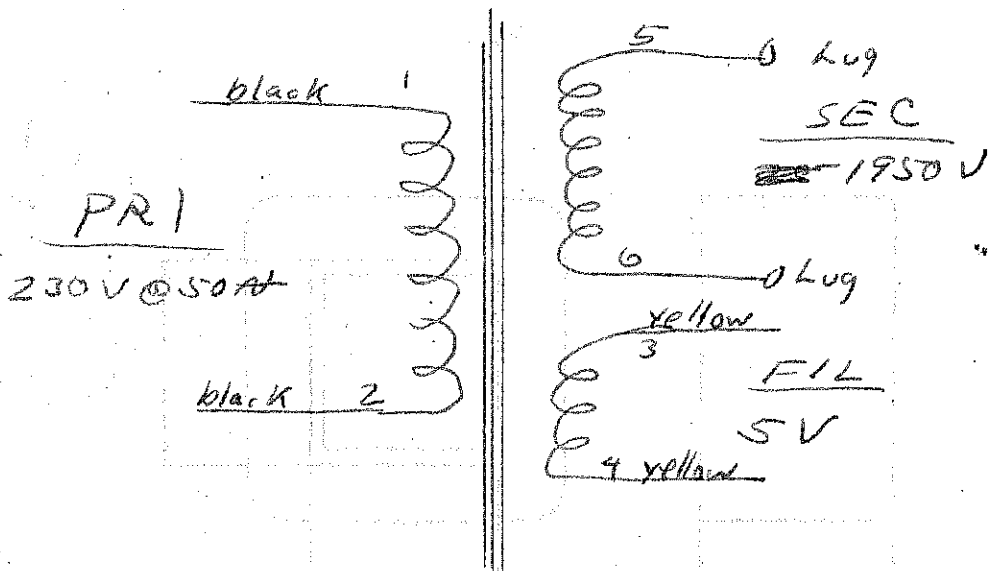 black 1
PRI
230 V @ 50
black 2
5
Lug
SEC
1950 V
6
Lug
yellow
3
FIL
5 V
4 yellow